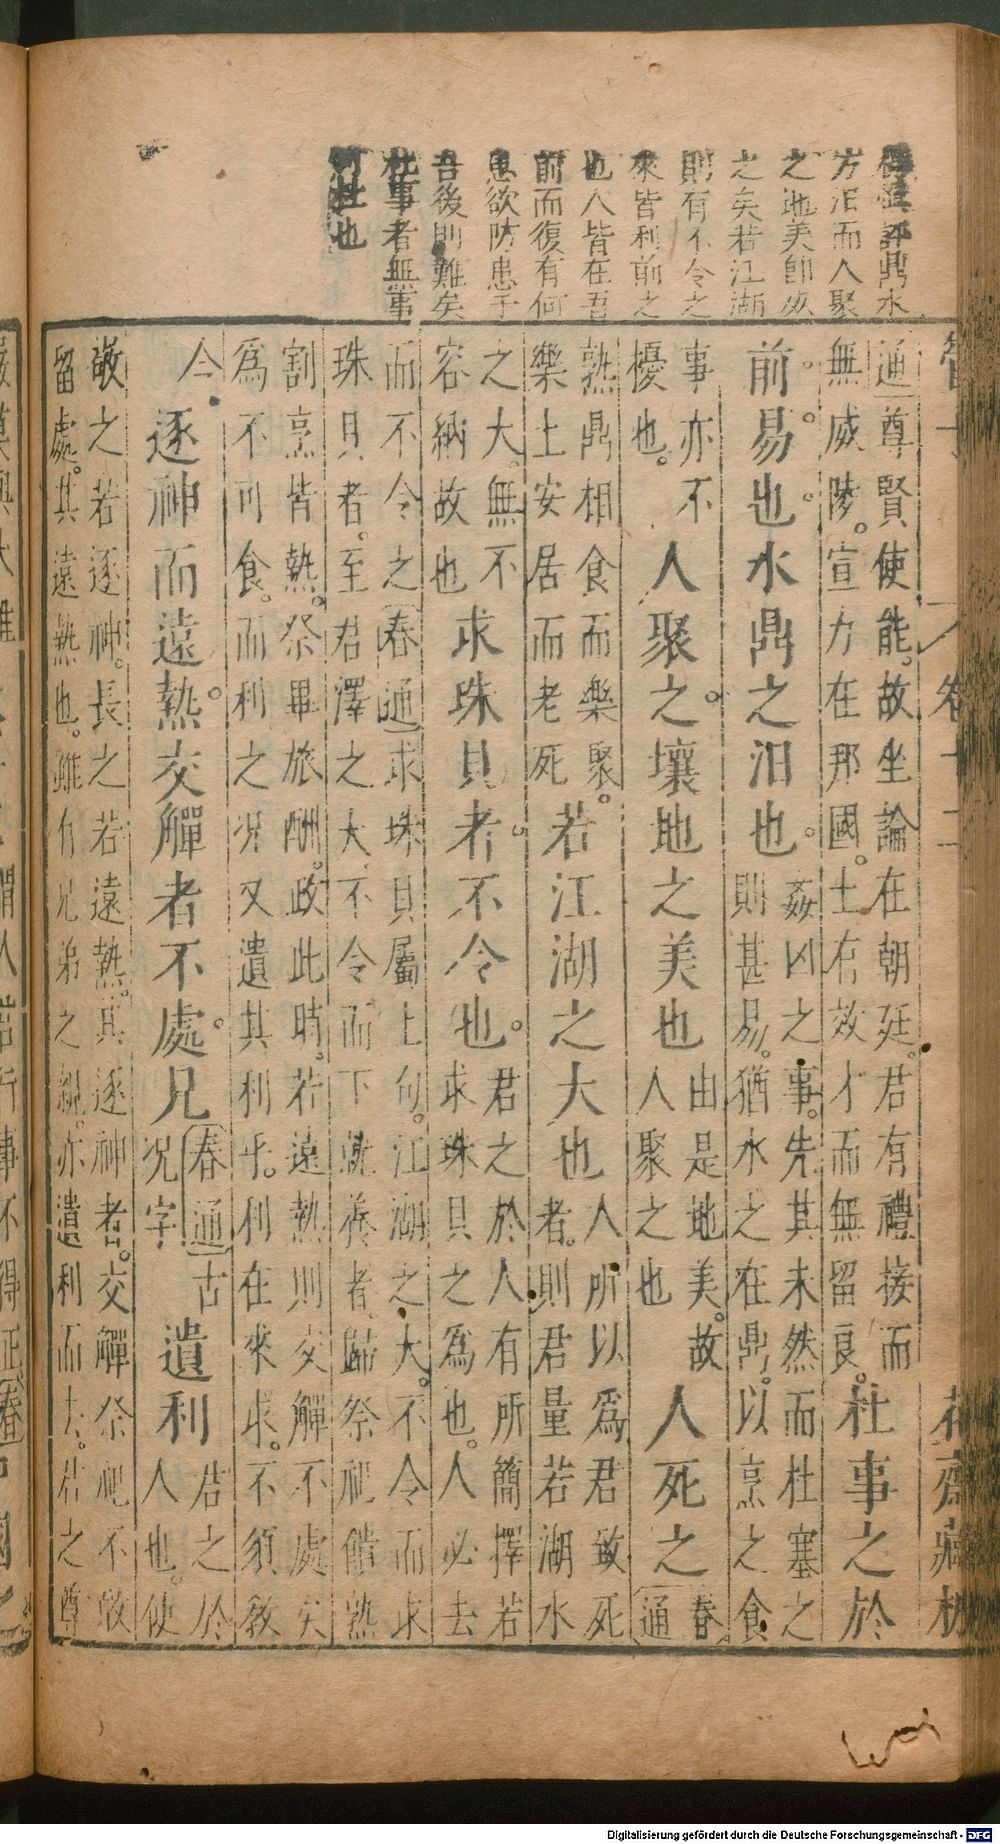 鼎水
方汨而人聚
之地美卽
之矣若江湖
則有不令之
來皆利前之
也人皆在吾
前而復有何
患欲防患于
吾後則難矣
杜事者無事
可杜也
管子 卷十二 花齋藏板
通尊賢使能。故坐論在朝廷。君有禮接而
無威陵。宣力在那國。士有效才而無留良。
杜事之於
前。易也。水鼎之汨也。
姦凶之事。先其未然而杜塞之
則甚易。猶水之在鼎。以烹之食
事亦不
擾也。
人聚之。壤地之美也
由是地美。故
人聚之也
人死之
春
通
熟鼎相食而樂聚。
樂土安居而老死
若江湖之大也
人所以爲君致死
者。則君量若湖水
之大。無不
容納故也
求珠貝者。不令也。
君之於人有所簡擇若
求珠貝之爲也。人必去
而不令之春通求珠貝屬上句。江湖之大。不令而求
珠貝者。至君澤之大、不令而下就養者、歸祭祀饋熟
割烹皆熟。祭畢旅酬。政此時。若遠熱則交觶不處矣
爲不可食。而利之況又遺其利乎。利在來求。不須敎
令
逐神而遠熱。交觶者不處。兄
春通古
況字
遺利
君之於
人也。使
敬之若逐神。長之若遠熱。其逐神者。交觶祭祀不敢
留處。其遠熱也。雖有兄弟之親。亦遺利而去。君之尊
Digitalisierung gefördert durch die Deutsche Forschungsgemeinschaft - DFG